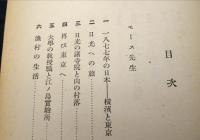 目次
モース先生
一 一八七七年の日本――横浜と東京
二 日光への旅
三 日光の諸寺院と山の村落
四 再び東京へ
五 大學の教授職と江ノ島實験所
六 漁村の生活